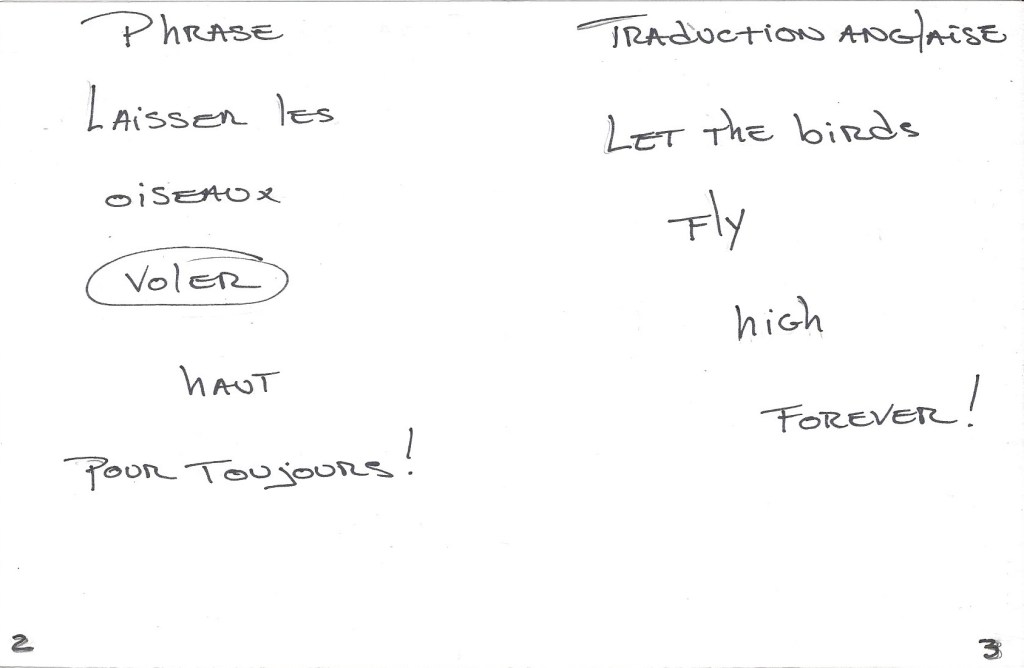 Phrase
Laisser les
oiseaux
Voler
haut
Pour Toujours!
2
Traduction anglaise
Let the birds
Fly
high
Forever!
3